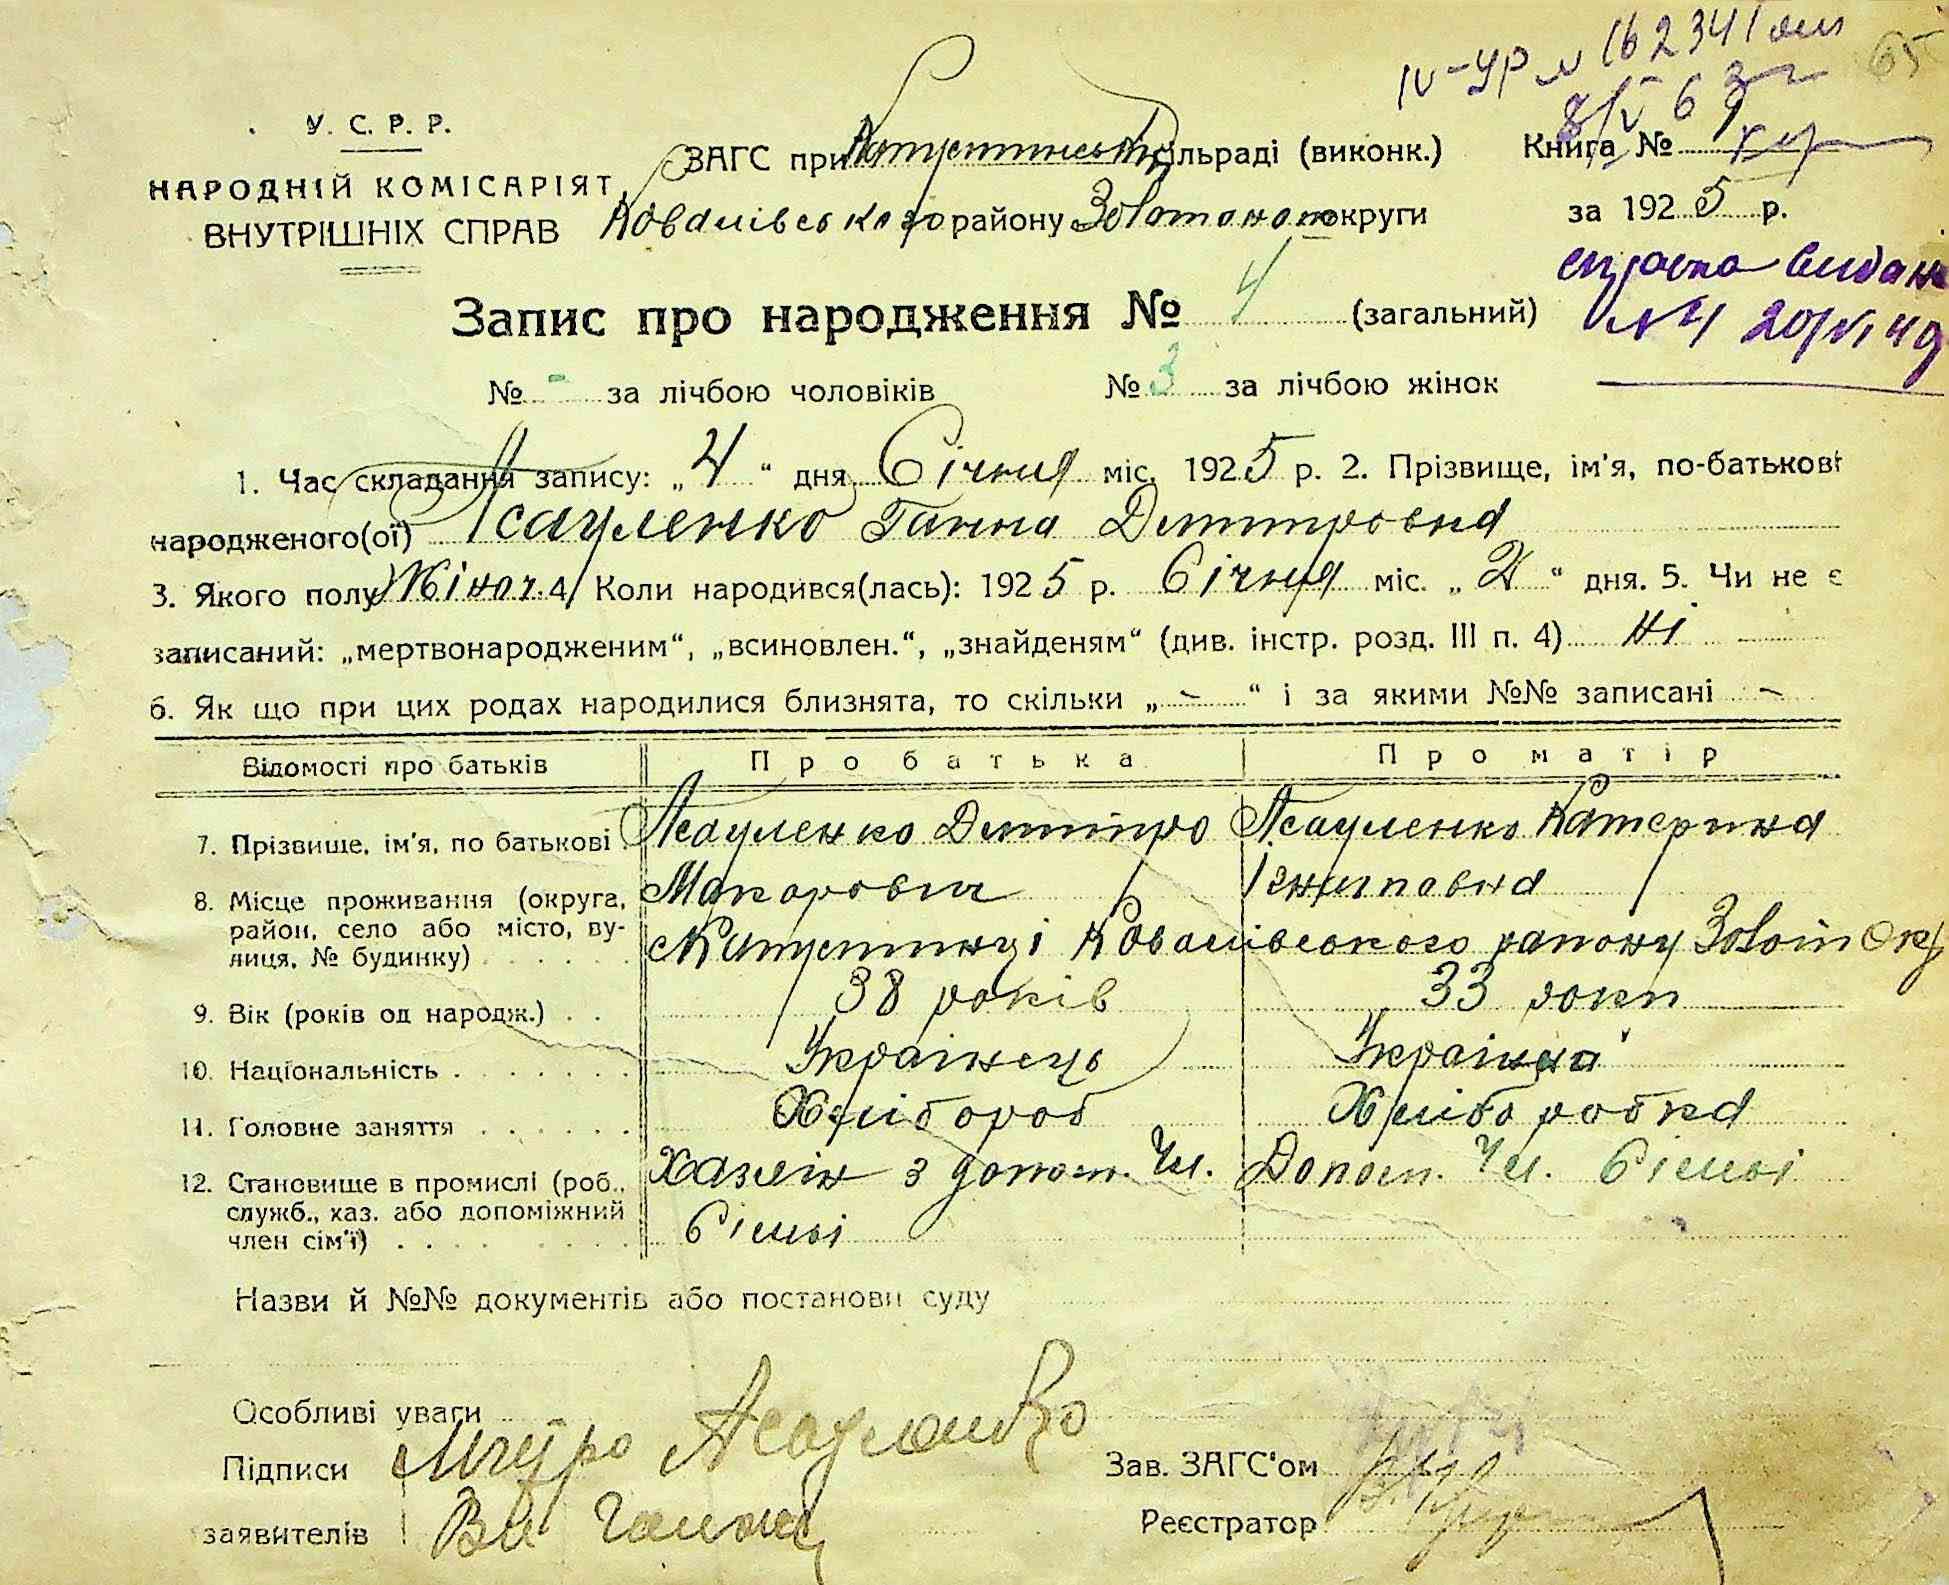 IV-УР № 162341
65
8/V 63 г
У. С. Р. Р.
НАРОДНІЙ КОМІСАРІЯТ
ВНУТРІШНІХ СПРАВ
ЗАГС при Капустинській сільраді (виконк.)
Ковалівського району Золотонош округи
Книга № 1
за 1925 р.
справка видана
№ 4 20/VI 49
Запис про народження № 4 (загальний)
№ - за лічбою чоловіків № 3 за лічбою жінок
1. Час складання запису: „4“ дня Січня міс. 1925 р. 2. Прізвище, ім'я, по-батькові
народженого(ої) Асауленко Ганна Дмитровна
3. Якого полу Жіноч. 4. Коли народився(лась): 1925 р. Січня міс. „2“ дня. 5. Чи не є
записаний: „мертвонародженим“, „всиновлен.“, „знайденям“ (див. інстр. розд. III п. 4) ні
6. Як що при цих родах народилися близнята, то скільки „-“ і за якими №№ записані -
Відомості про батьків Про батька Про матір
7. Прізвище, ім'я, по батькові Асауленко Дмитро Макарович Асауленко Катерина Ігнатовна
8. Місце проживання (округа,
район, село або місто, ву-
лиця, № будинку) Капустинці Ковалівського району Золот Окр
9. Вік (років од народж.) 38 років 33 роки
10. Національність Українець Українка
11. Головне заняття Хлібороб Хліборобка
12. Становище в промислі (роб.,
служб., хаз. або допоміжний
член сім'ї) Хазяін з допом. Чл. Сімьі Допом. Чл. Сімьі
Назви й №№ документів або постанови суду
Особливі уваги
Підписи
заявителів
Зав. ЗАГС'ом
Реєстратор